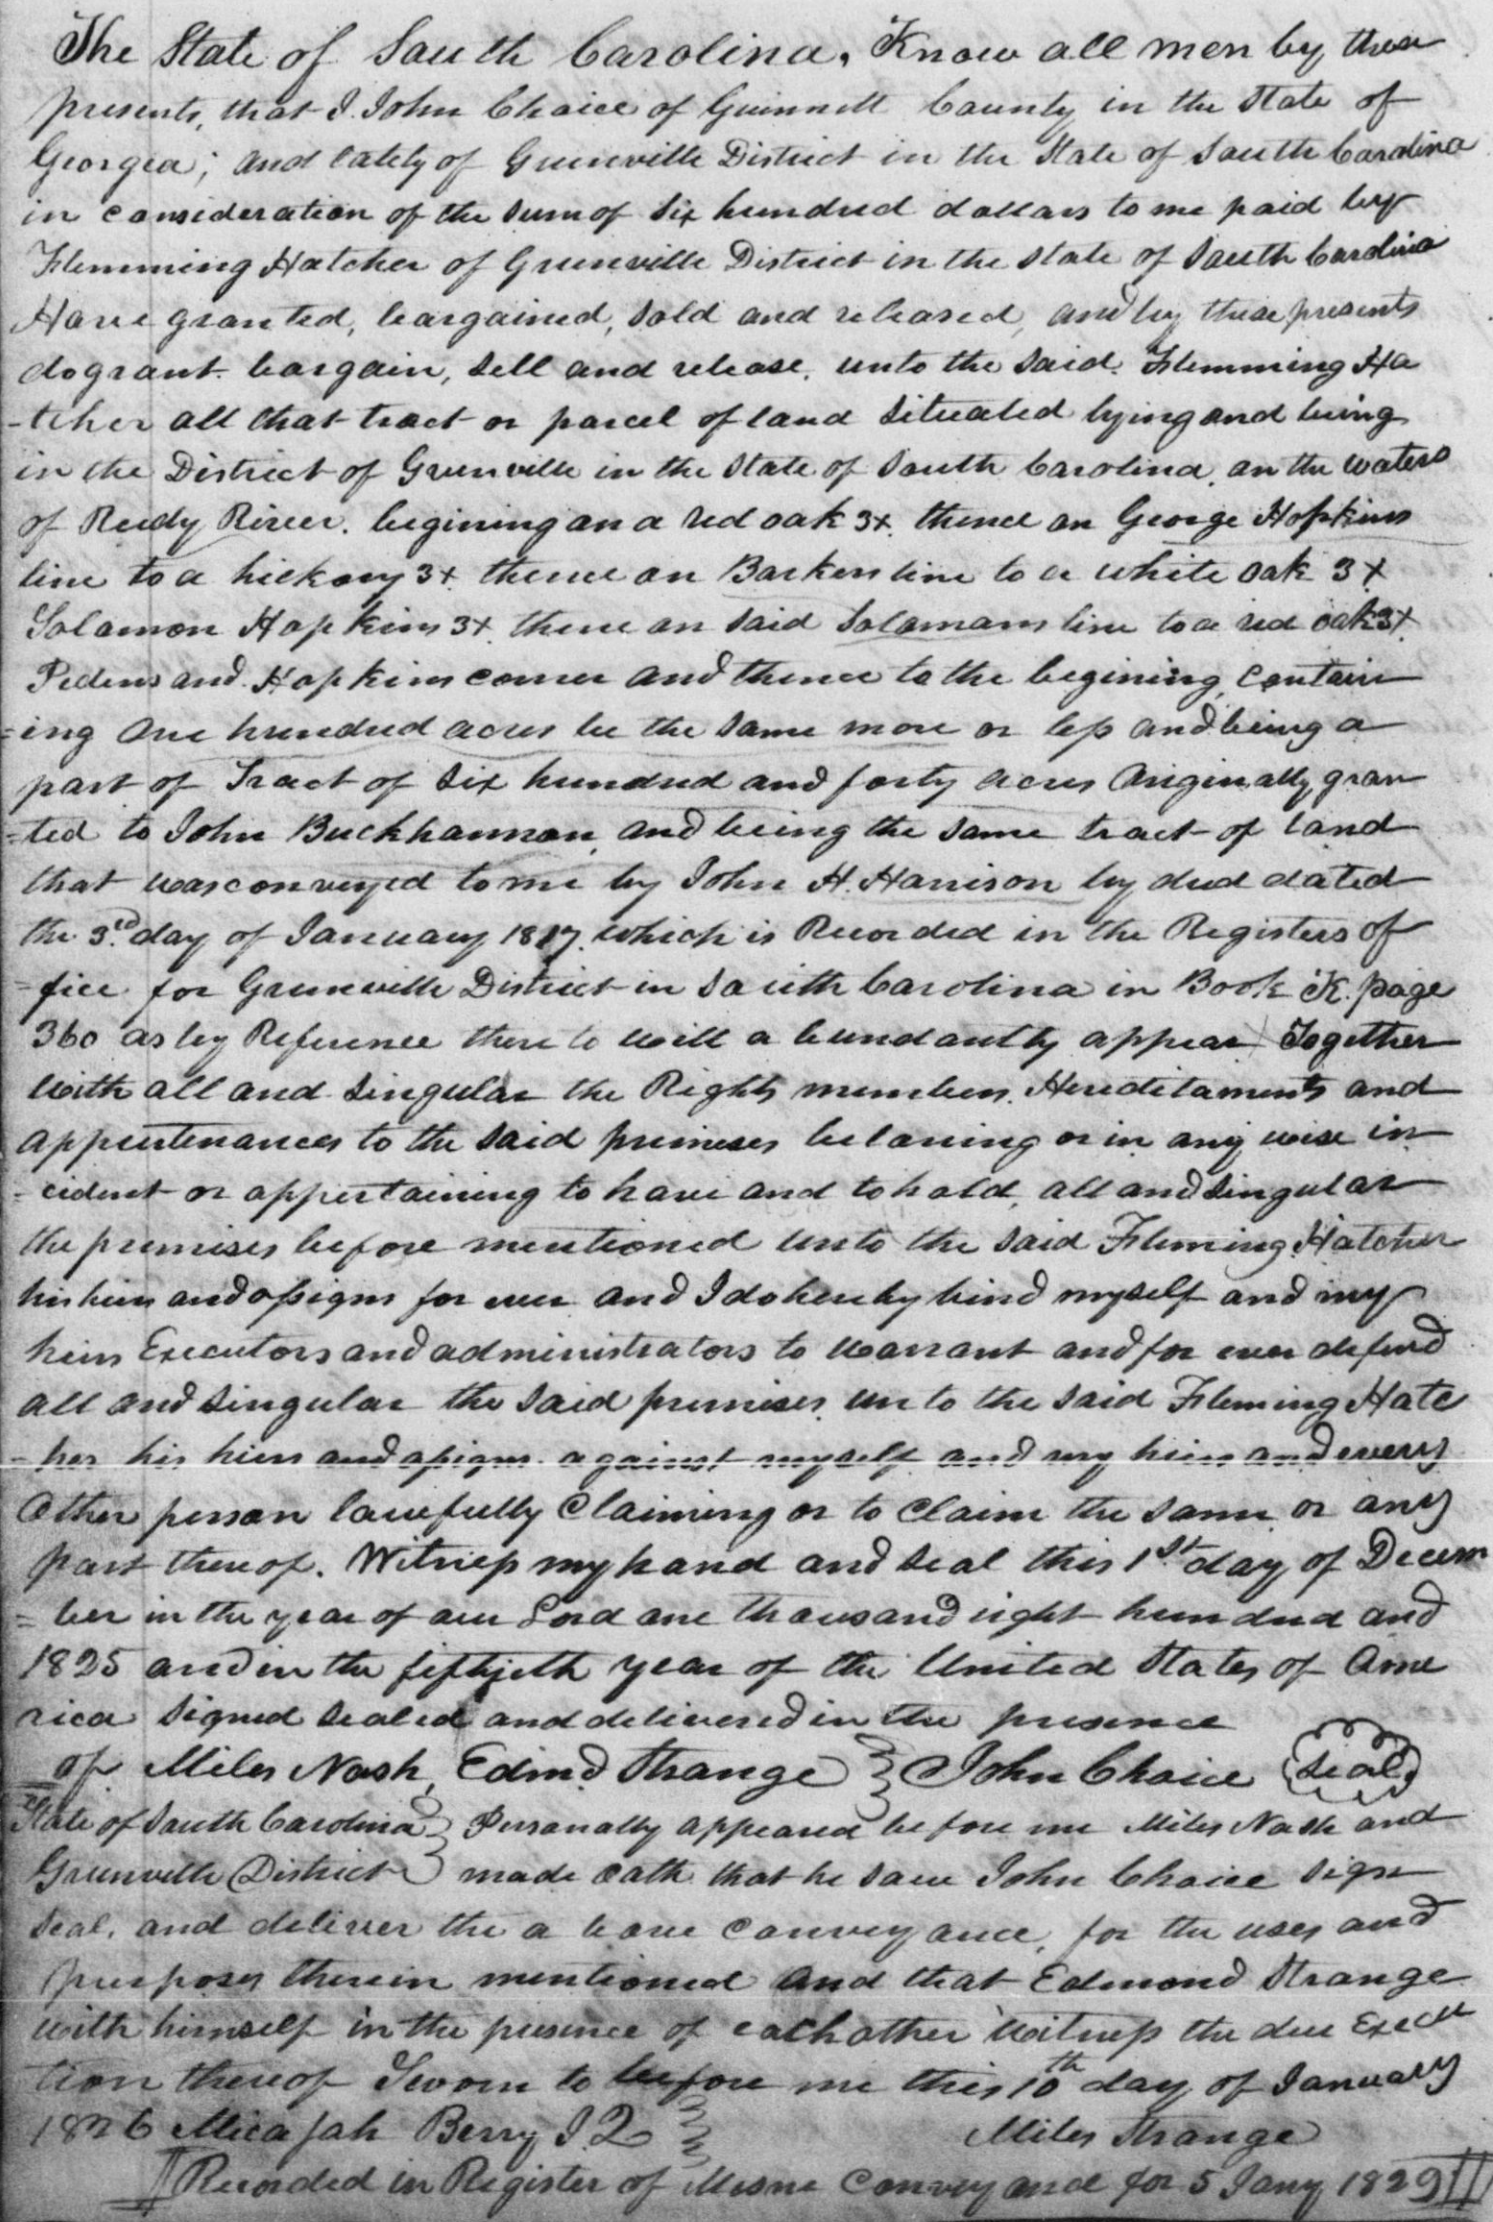 The State of South Carolina, Know all men by these
presents, that I. John Choice of Guinnett County in the State of
Georgia; and lately of Greenville District in the State of South Carolina
in consideration of the sum of six hundred dollars to me paid by
Flemming Hatcher of Greenville District in the state of South Carolina
Have granted, bargained, sold and released, and by these presents
do grant. bargain, sell and release, unto the said. Flemming Ha
-tcher all that tract or parcel of land situated lying and being
in the District of Greenville in the State of South Carolina, on the waters
of Reedy River. begining on a red oak 3x. thence on George Hopkins
line to a hickory 3x thence on Barkers line to a white oak 3x
Solomon Hopkins 3x. thence on said Solomans line to a red oak 3x.
Pedens and Hopkins corner and thence to the begining, contain
=ing one hundred acres be the same more or less and being a
part of Tract of six hundred and forty acres originally gran
=ted to John Buckhannon, and being the same tract of land
that was conveyed to me by John H. Harrison by deed dated
the 3rd. day of January 1817. which is Recorded in the Registers of
=fice for Greenville District in South Carolina in Book K. page
360 as by Reference there to will a bundantly appear Together
with all and singular the Rights members, Hereditaments and
appurtenances to the said premises beloning or in any wise in
-cident or appertaining to have and to hold, all and singular
the premises before mentioned unto the said Fleming Hatcher
his heirs and assigns for ever and I do hereby bind myself and my
heirs Executors and administrators to warrant and for ever defend
all and singular the said premises, un to the said Fleming Hatc
-her his heirs and assigns against myself and my heirs and every
other person lawfully Claiming or to Claim the same or any
part thereof. Witness my hand and seal this 1st day of Decem
=ber in the year of our Lord one thousand eight hundred and
1825 and in the fiftyeth year of the United States of Ame
rica signed sealed and delivered in the presence
of Miles Nash, Edmd Strange } John Choice (seal)
State of South Carolina } Personally appeared before me Miles Nash and
Greenville District } made oath that he saw John Choice sign
seal, and deliver the a bove conveyance, for the uses and
purposes therein mentioned and that Edmond Strange
with himself in the presence of each other witness the due Execu
tion thereof Sworn to before me this 10th day of January
1826 Micajah Berry J.Q } Miles Strange
Recorded in Register of Mesne Conveyance for 5 Jany 1829